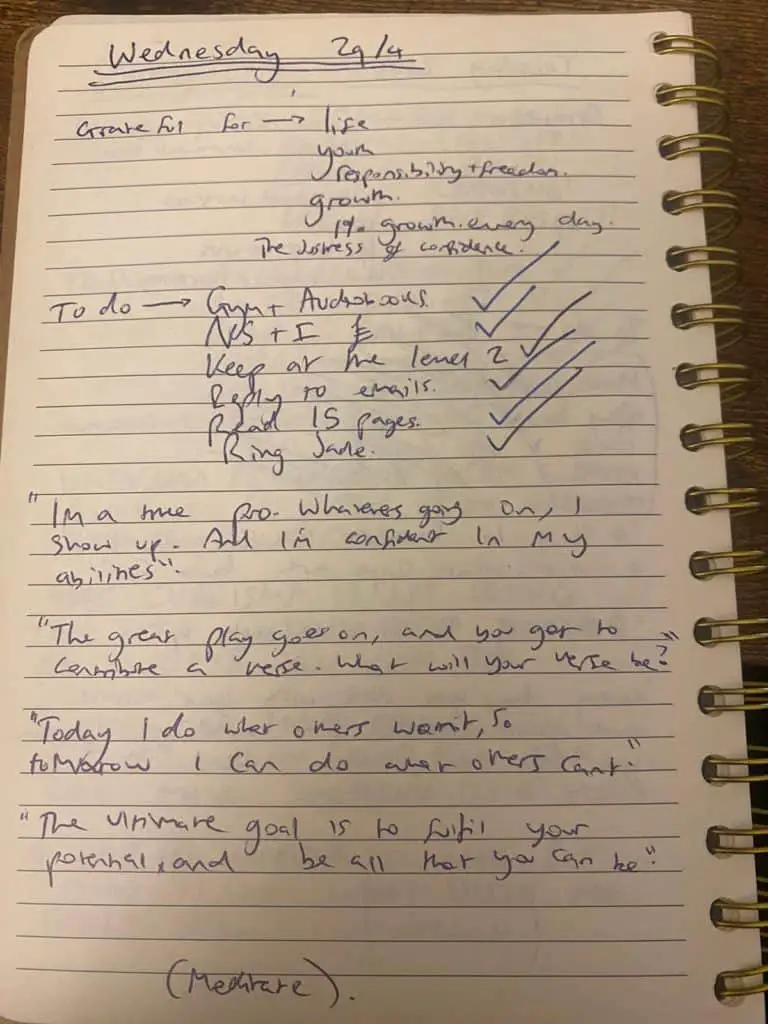 Wednesday 29/4
Grateful for → life
youth
responsibility + freedom.
growth.
1% growth every day.
The of confidence.
To do → Gym + Audiobooks.
+ I
Keep at the level 2
Reply to emails.
Read 15 pages.
Ring Jade.
"Im a true pro. Whatevers going on, I
show up. And I'm confident in my
abilities".
"The great play goes on, and you get to
contribute a verse. What will your verse be?"
"Today I do what others wont, so
tomorrow I can do what others cant."
"The ultimate goal is to fulfil your
potential, and be all that you can be".
(Meditate).